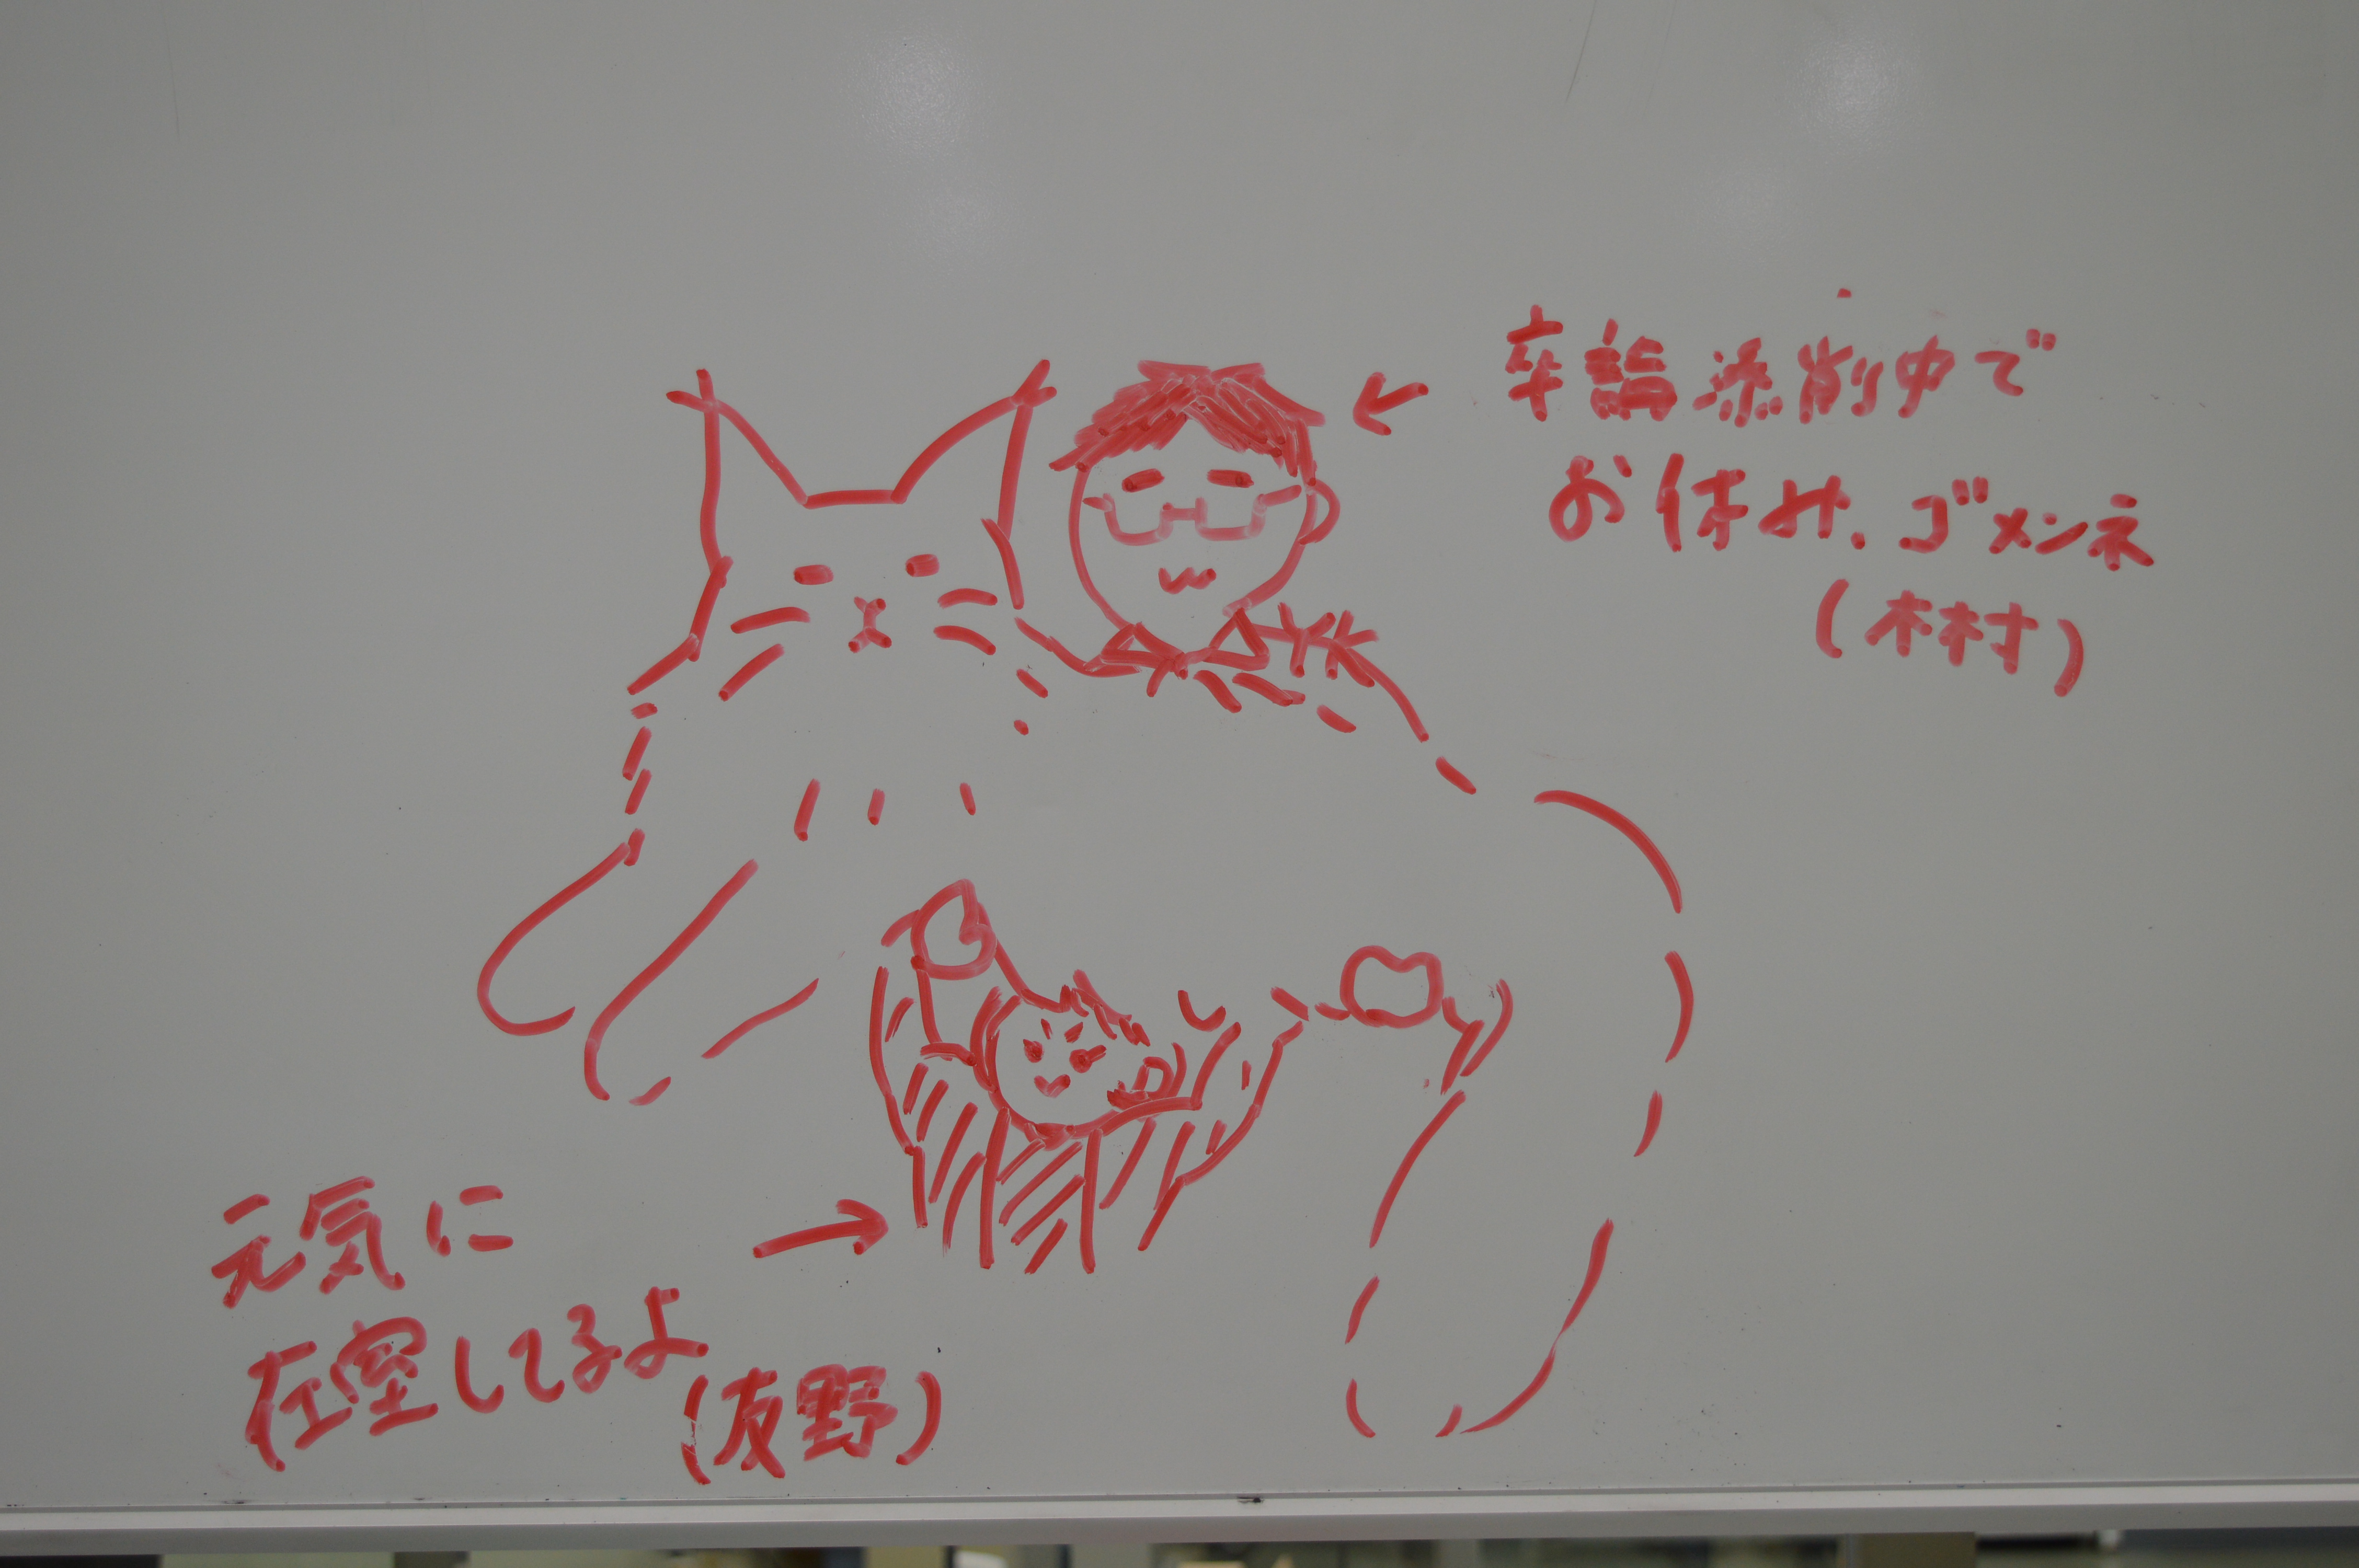 卒論添削中で
お休み.ゴメンネ
(木村)
元気に
在室してるよ
(友野)